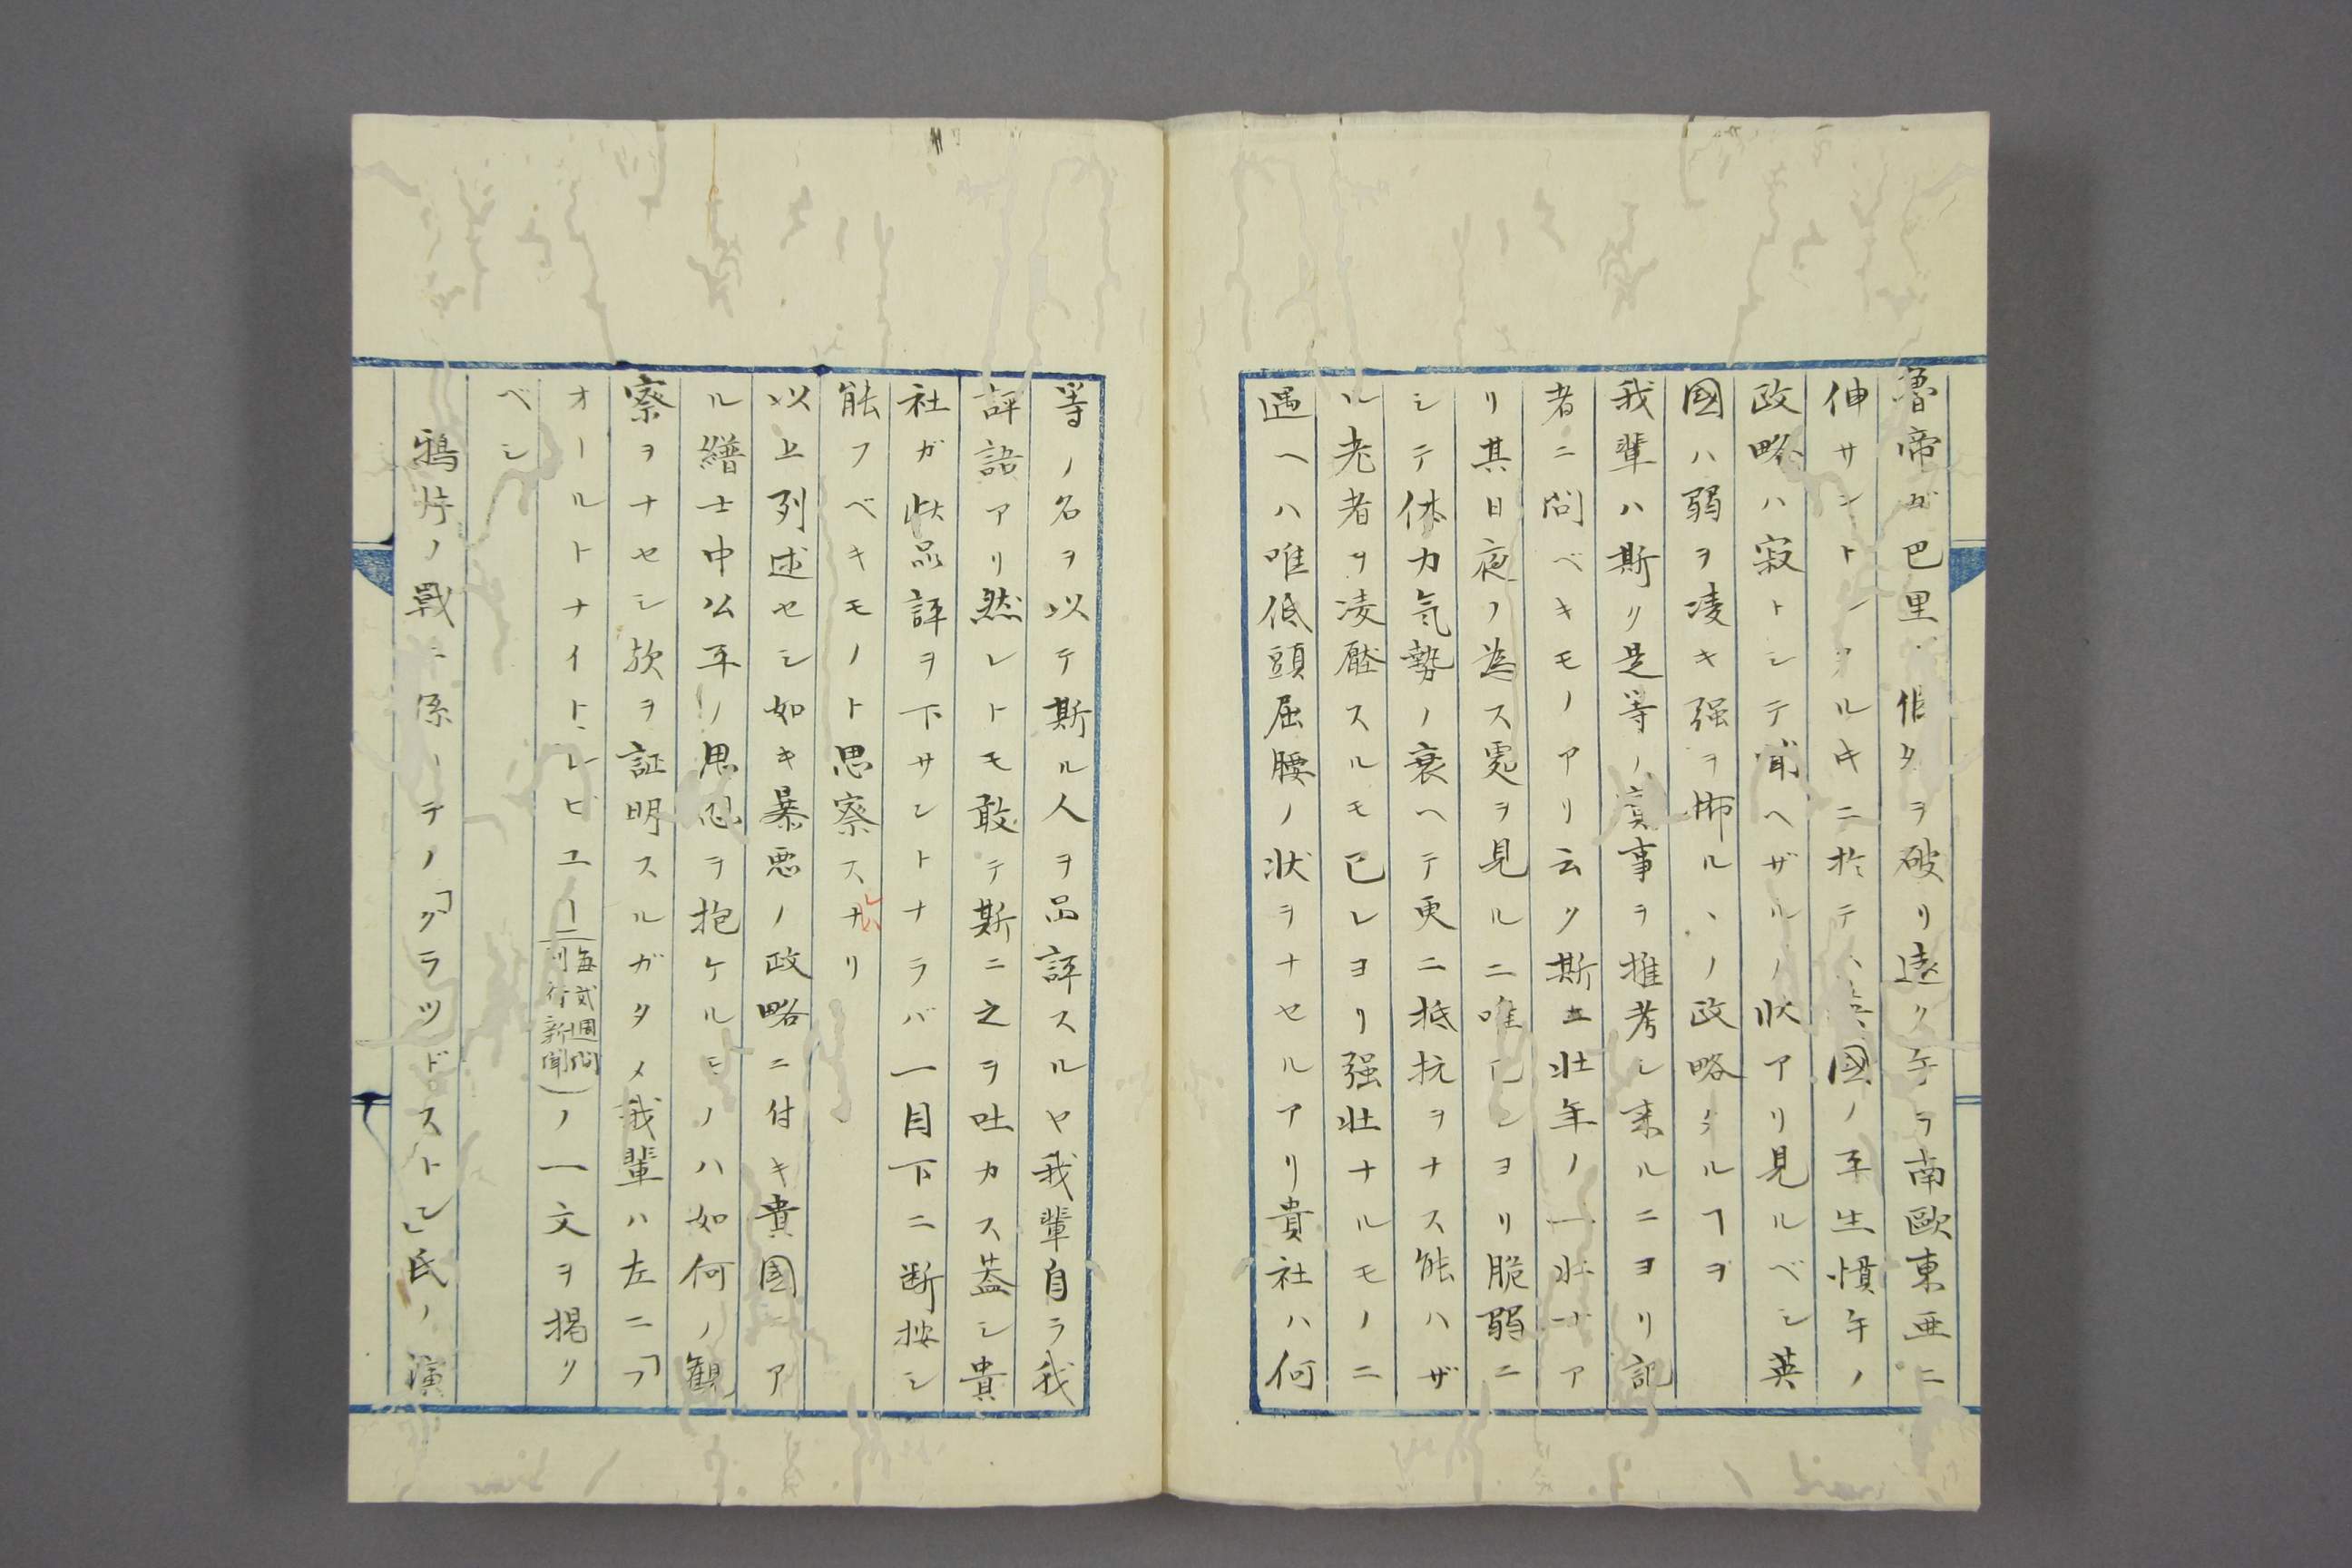 魯帝ガ巴里　　タヲ破リ遠ク手ヲ南歐東亜ニ
伸サントシタルキニ於テハ英國ノ平生憤午ノ
政略ハ寂トシテ聞ヘザルノ状アリ見ルベシ英
國ハ弱ヲ凌キ强ヲ怖ルヽノ政略タルヿヲ
我輩ハ斯ク是等ノ真事ヲ推考シ来ルニヨリ記
者ニ問ベキモノアリ云ク斯ニ壮年ノ一壮士ア
リ其日夜ノ為ス䨇ヲ見ルニ唯己レヨリ脆弱ニ
シテ体力気勢ノ衰ヘテ更ニ抵抗ヲナス能ハザ
ル老者ヲ凌壓スルモ已レヨリ强壮ナルモノニ
遇ヘハ唯低頭屈腰ノ状ヲナセルアリ貴社ハ何
等ノ名ヲ以テ斯ル人ヲ品評スルヤ我輩自ラ我
評語アリ然レトモ敢テ斯ニ之ヲ吐カス蓋シ貴
社ガ此品評ヲ下サントナラバ一目下ニ断按シ
能フベキモノト思察スナリ
以上列述セシ如キ暴悪ノ政略ニ付キ貴国ニア
ル縉士中公平ノ思想ヲ抱ケルモノハ如何ノ観
察ヲナセシ欤ヲ証明スルガタメ我輩ハ左ニ「フ
オールトナイトレビユー（毎弐週間刊行新聞）ノ一文ヲ掲ク
ベシ
鴉片ノ戰ニ係ーテノ「クラツドストン」氏ノ演